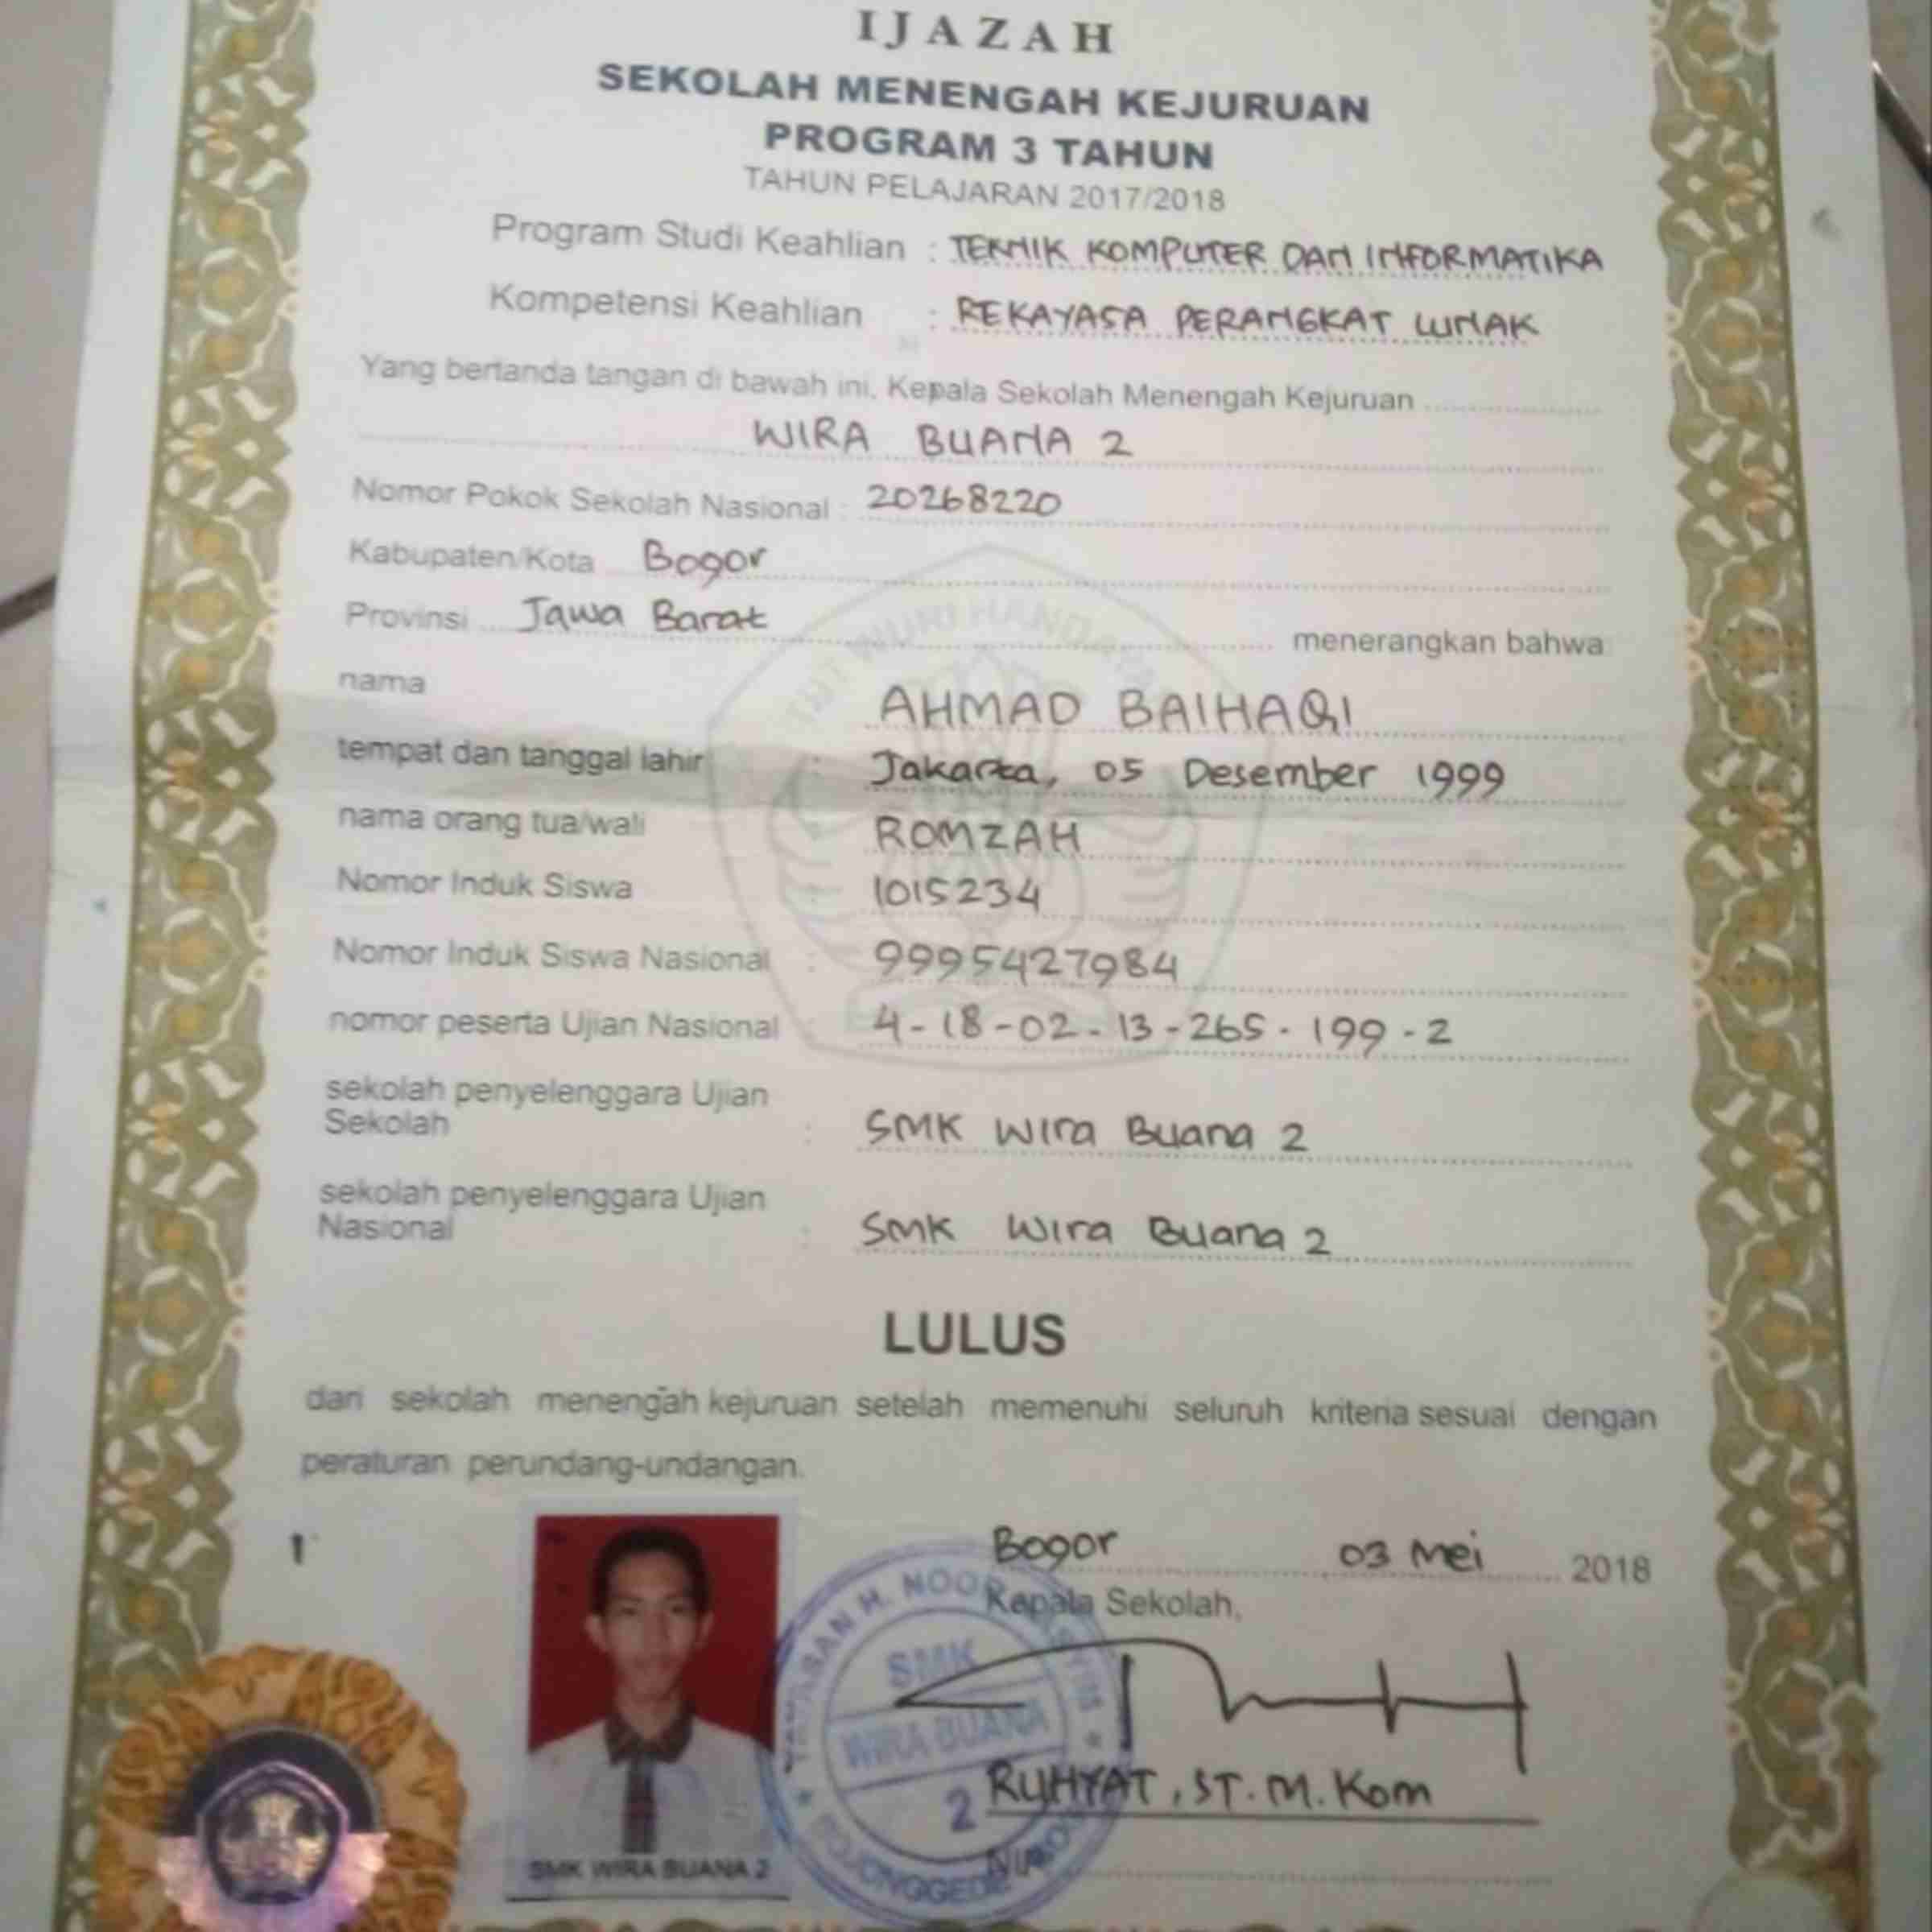 IJAZAH
SEKOLAH MENENGAH KEJURUAN
PROGRAM 3 TAHUN
TAHUN PELAJARAN 2017/2018
Program Studi Keahlian : TEKNIK KOMPUTER DAN INFORMATIKA
Kompetensi Keahlian : REKAYASA PERANGKAT LUNAK
Yang bertanda tangan di bawah ini, Kepala Sekolah Menengah Kejuruan
WIRA BUANA 2
Nomor Pokok Sekolah Nasional : 20268220
Kabupaten/Kota Bogor
Provinsi Jawa Barat menerangkan bahwa
nama AHMAD BAIHAQI
tempat dan tanggal lahir : Jakarta, 05 Desember 1999
nama orang tua/wali ROMZAH
Nomor Induk Siswa : 1015234
Nomor Induk Siswa Nasional : 9995427984
nomor peserta Ujian Nasional : 4-18-02-13-265-199-2
sekolah penyelenggara Ujian
Sekolah : SMK Wira Buana 2
sekolah penyelenggara Ujian
Nasional : SMK Wira Buana 2
LULUS
dari sekolah menengah kejuruan setelah memenuhi seluruh kriteria sesuai dengan
peraturan perundang-undangan.
Bogor 03 Mei 2018
Kepala Sekolah,
YAYASAN H. NOOR
SMK
WIRA BUANA
2
BOJONGGEDE
RUHYAT, ST. M. Kom
SMK WIRA BUANA 2